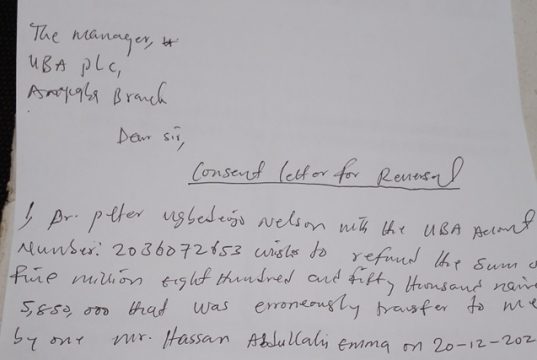 The Manager,
UBA plc,
Anyigba Branch
Dear Sir,
Consent letter for Reversal
I, Dr. peter ugbedeojo Nelson with the UBA Account
Number: 2036072653 wishes to refund the sum o
five million eight Hundred and fifty Thousand nair
5,850,000 that was erroneously transfer to me
by one Mr. Hassan Abdullahi Emma on 20-12-202